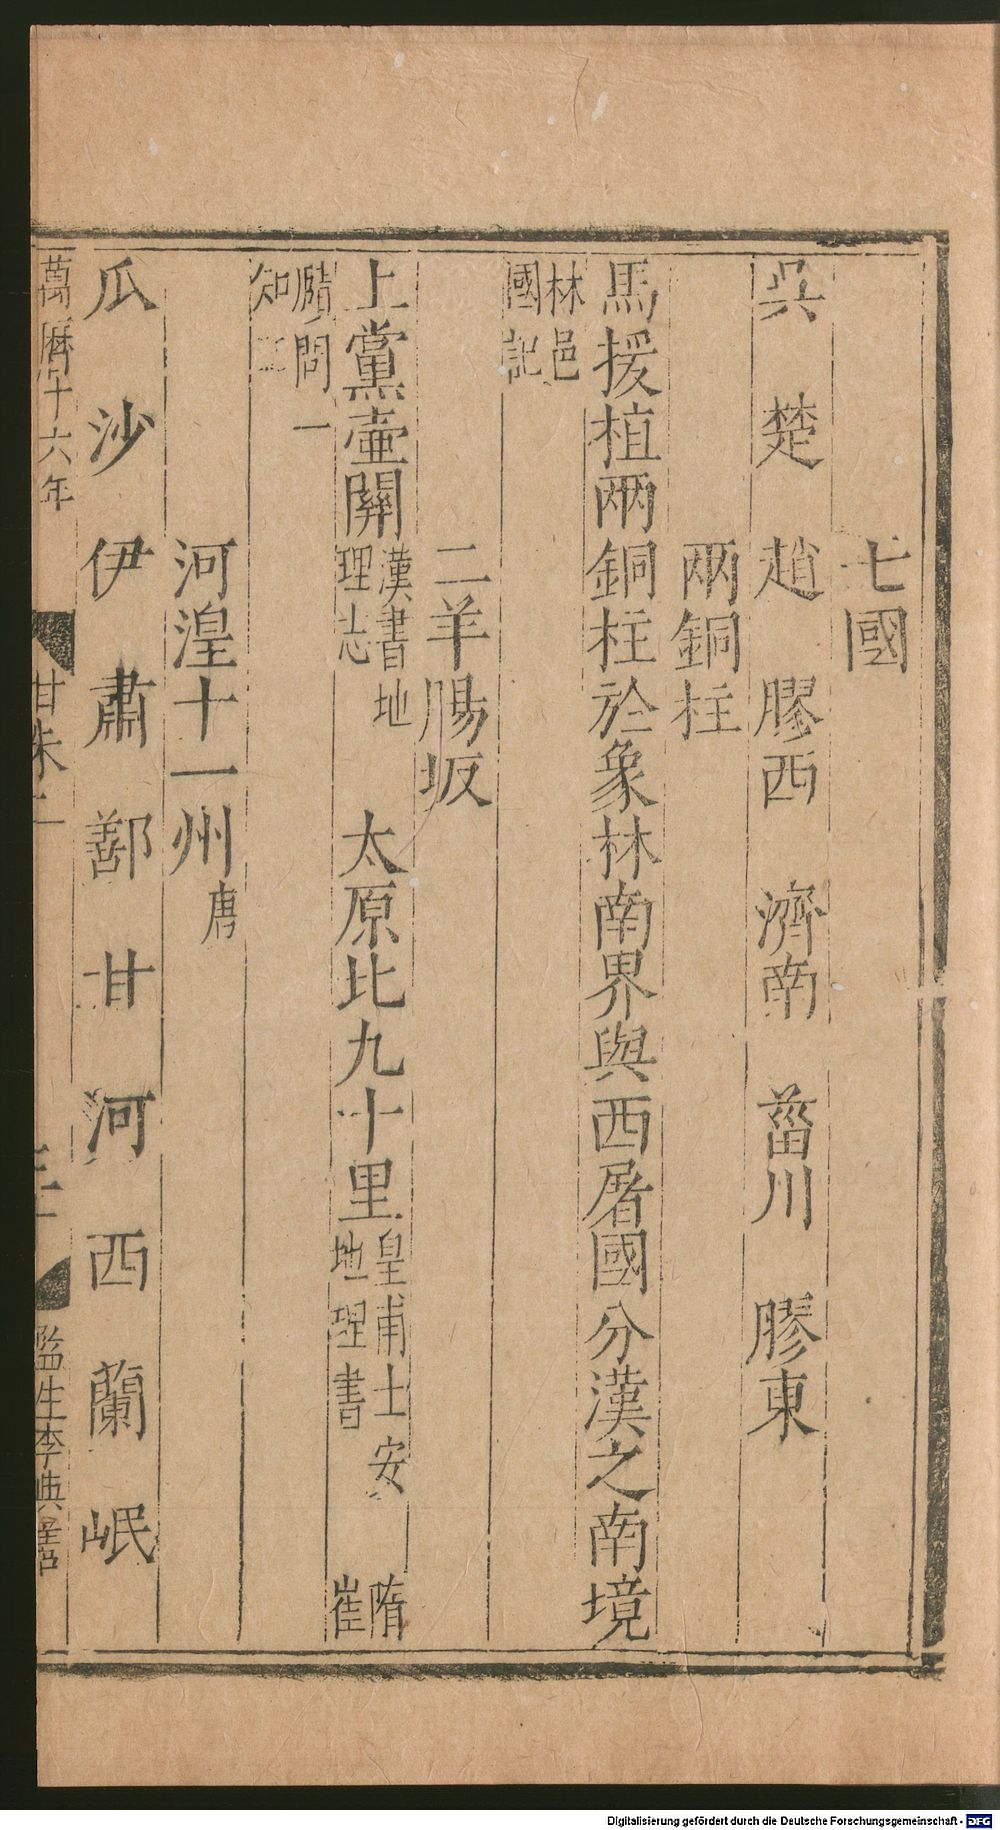 七國
吳　楚　趙　膠西　濟南　菑川　膠東
兩銅柱
馬援植兩銅柱於象林南界與西屠國分漢之南境
林邑
國記
二羊腸坂
上黨壺關
漢書地
理志
太原北九十里
皇甫士安
地理書
隋
崔
賾問一
知二
河湟十一州
唐
瓜　沙　伊　肅　鄯　甘　河　西　蘭　岷
萬曆十六年
監生李典
Digitalisierung gefördert durch die Deutsche Forschungsgemeinschaft - DFG